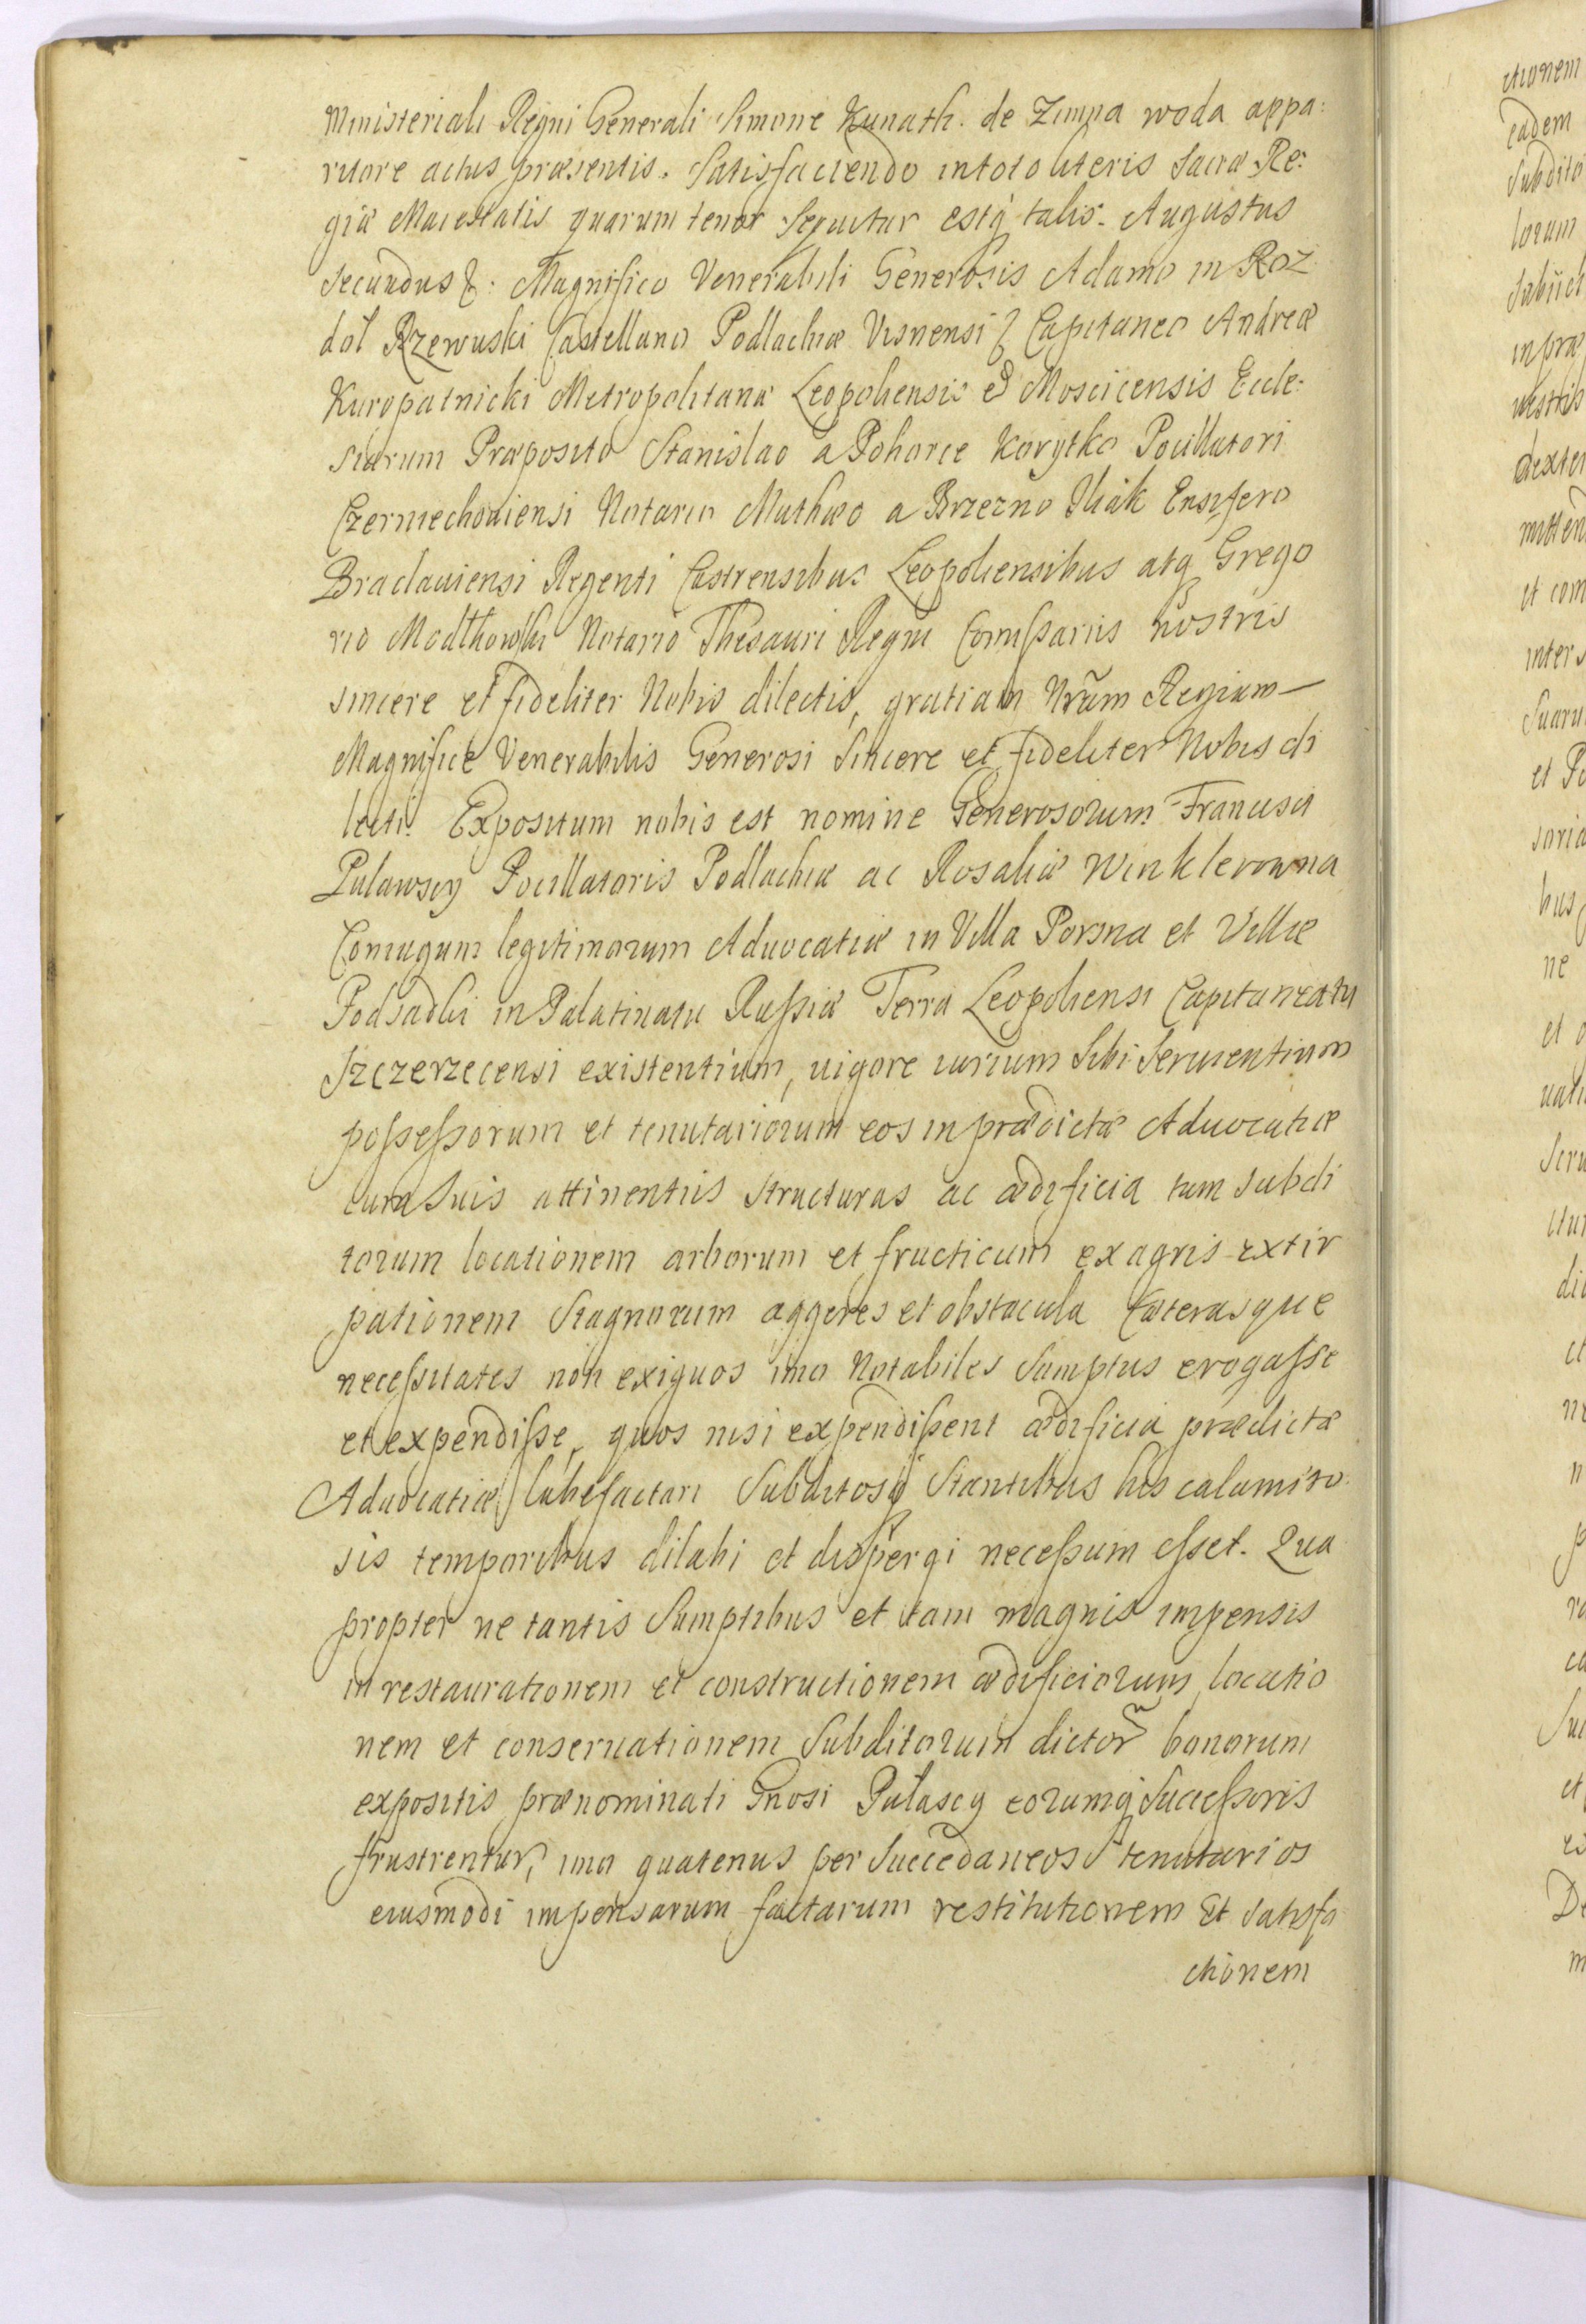 Ministeriali Regni Generali Simone Kunath. de Zimna woda appa:
ritore actus præsentis. Satisfaciendo intoto literis Sacræ Re:
giæ Maiestatis quarum tenor Sequitur estq́ talis. Augustus
Secundus &. Magnifico Venerabili Generosis Adamo in Roz
dol Rzewuski Castellano Podlachiæ Visnensi & Capitaneo Andreæ
Kuropatnicki Metropolitanæ Leopoliensis et Moscicensis Eccle:
siarum Præposito Stanislao a Pohorce Korytko Pocillatori
Czerniechoviensi Notario Mathæo a Brzezno Ensifero
Braclaviensi Regenti Castrensibus Leopoliensibus atq Grego
rio Notario Thesauri Regni Comißariis nostris
sincere et fideliter Nobis dilectis, gratiam Nr̃am Regiam—
Magnifice Venerabilis Generosi Sincere et fideliter Nobis di
lecti. Expositum nobis est nomine Generosorum Francisci
Pulawscy Pocillatoris Podlachiæ ac Rosaliæ Winklerowna
Coniugum legitimorum Advocatiæ in Villa Porsna et Villæ
Podsadki in Palatinatu Rußiæ Terra Leopoliensi Capitaneatu
Szczerzecensi existentium, vigore iurium Sibi Servientium
poßeßorum et tenutariorum eos in prædictæ Advocatiæ
cum Suis attinentiis Structuras ac ædificia tum Subdi
torum locationem arborum et fructicum ex agris extir
pationem Stagnorum aggeres et obstacula Cæterasque
neceßitates non exiguos imo Notabiles Sumptus erogaße
et expendiße, quos nisi expendißent ædificia prædictæ
Advocatiæ labefactari Subditosq́ Stantibus his calamito
sis temporibus dilabi et dispergi neceßum eßet. Qua
propter ne tantis Sumptibus et tam magnis impensis
in restaurationem et constructionem ædificiorum, locatio
nem et conservationem Subditorum dictor̃ bonorum
expositis prænominati Gnosi Pulascy eorumq́ Succeßoris
frustrentur, imo quatenus per Succedaneos tenutarios
eiusmodi impensarum factarum restitutionem Et Satisfa
ctionem